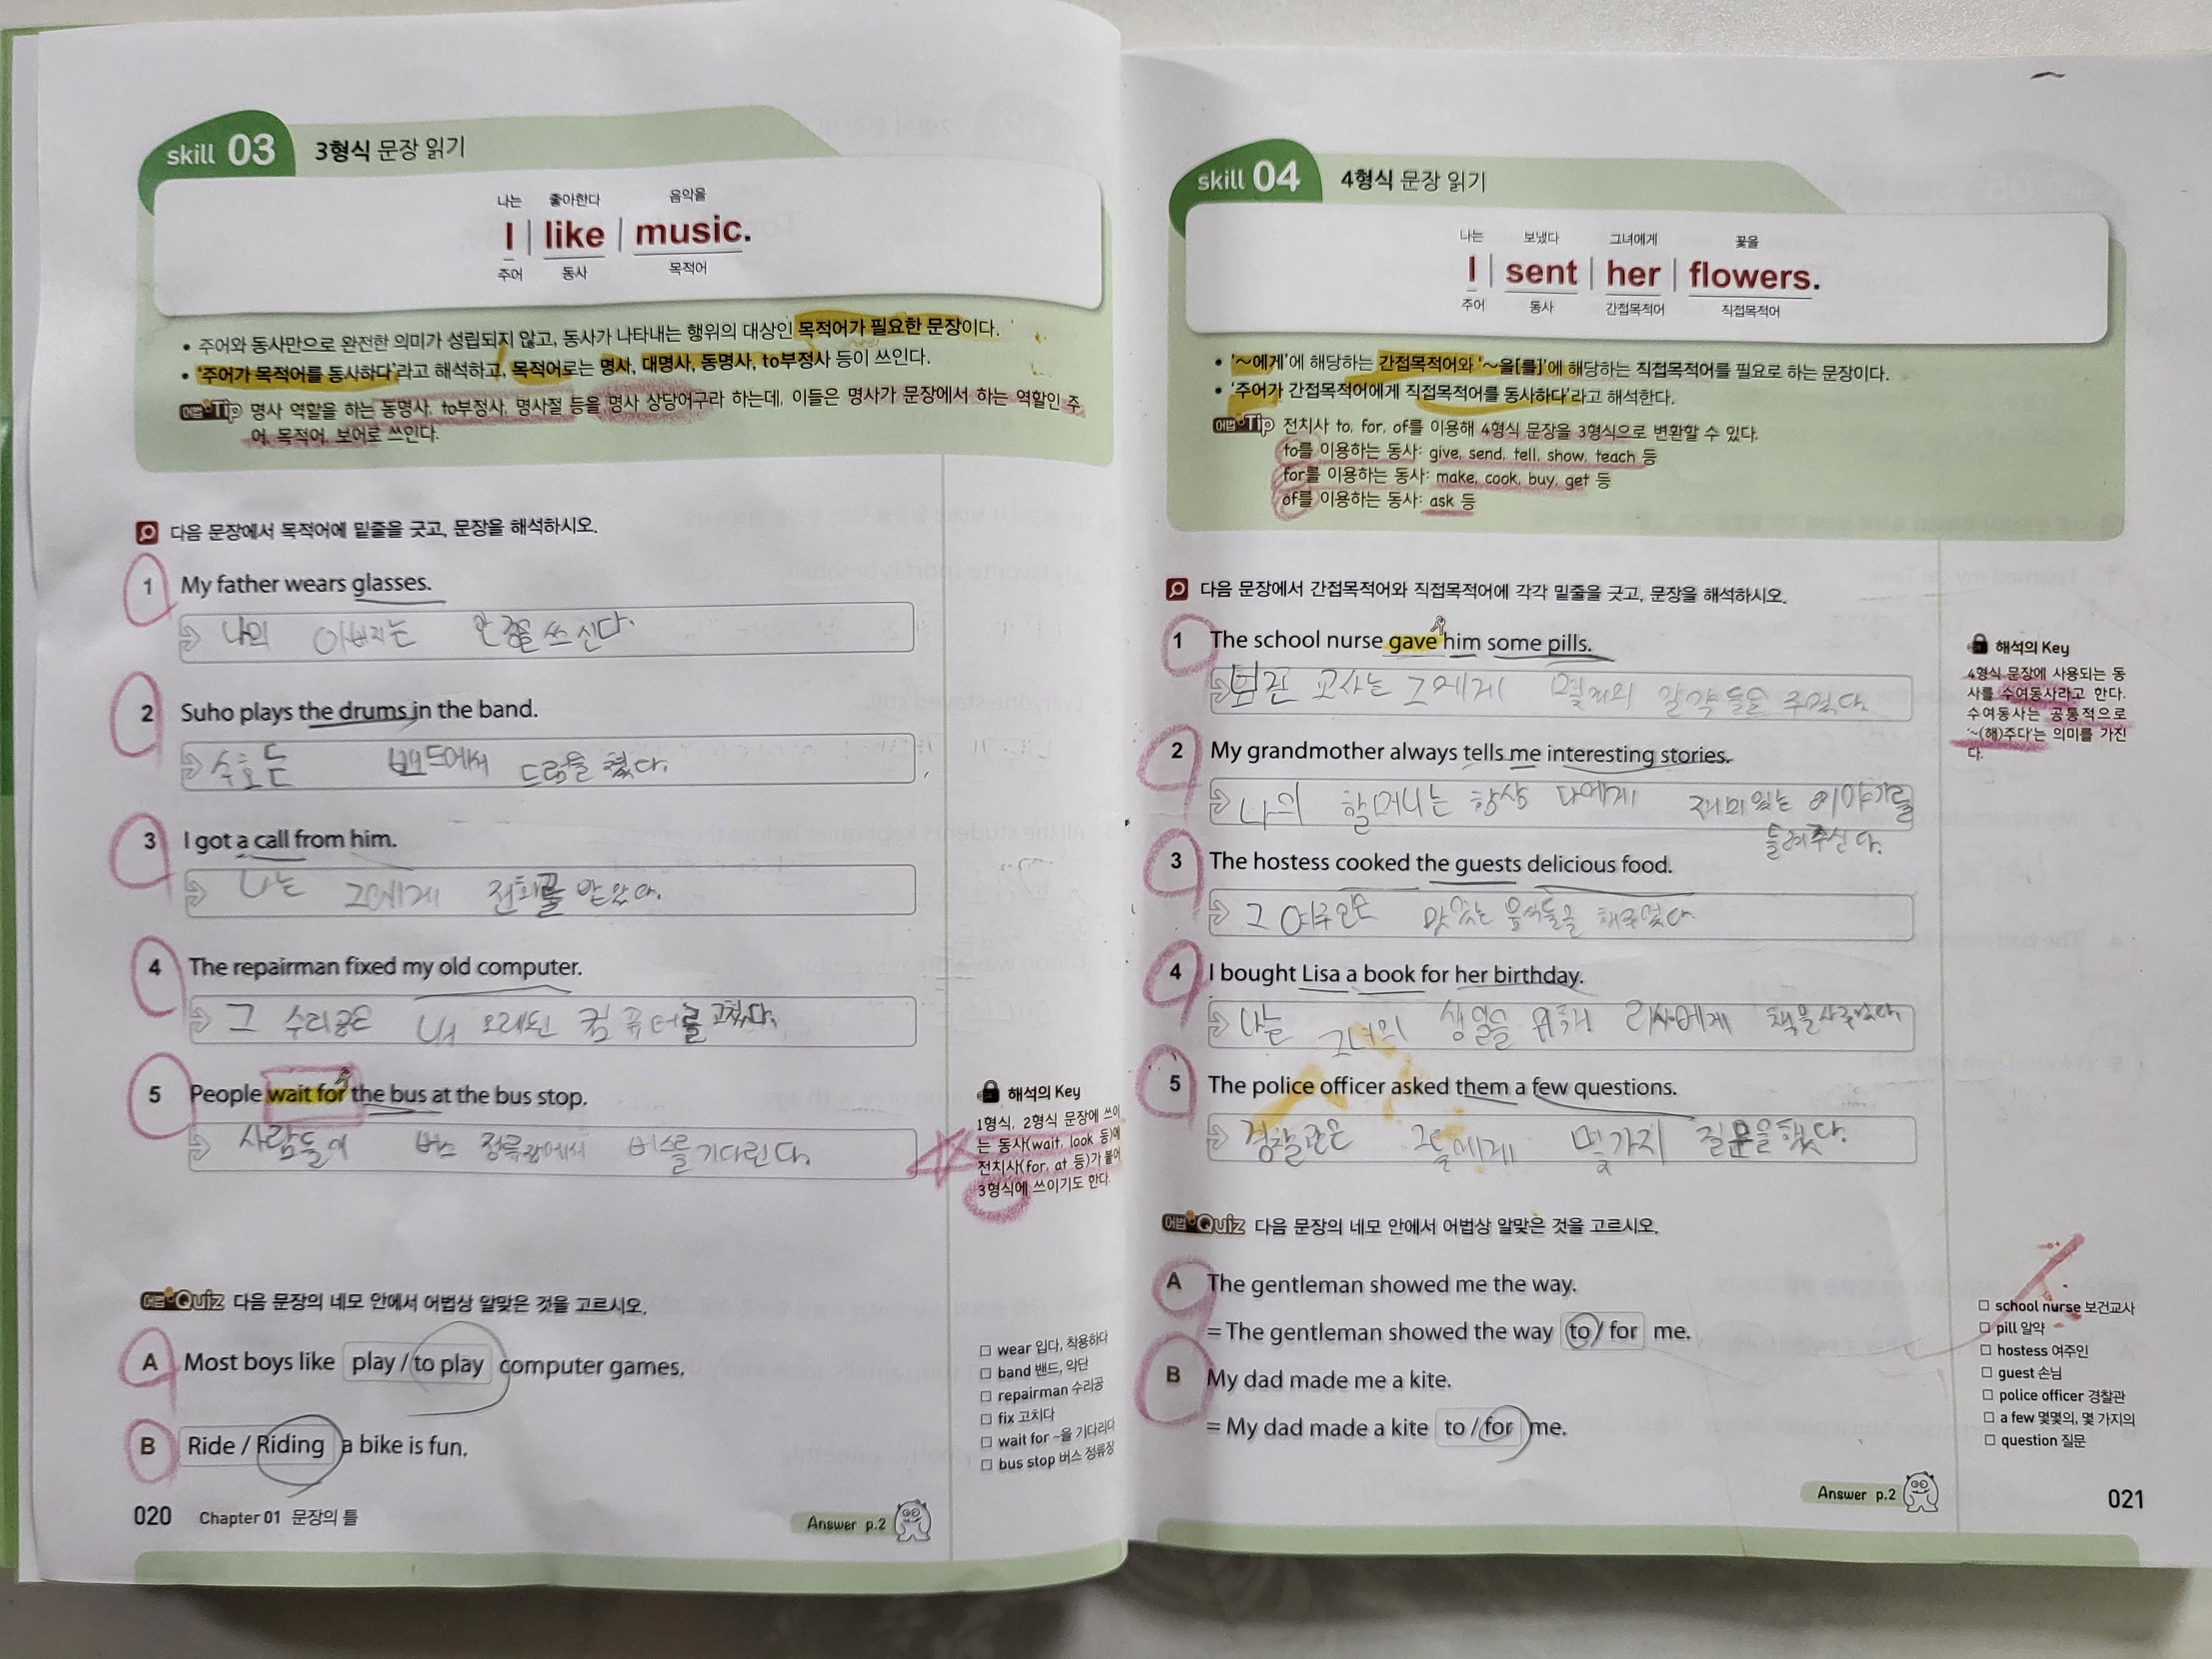 skill 03 3형식 문장 읽기
나는 좋아한다 음악을
I | like | music.
주어 동사 목적어
• 주어와 동사만으로 완전한 의미가 성립되지 않고, 동사가 나타내는 행위의 대상인 목적어가 필요한 문장이다.
• '주어가 목적어를 동사하다'라고 해석하고, 목적어로는 명사, 대명사, 동명사, to부정사 등이 쓰인다.
어법 Tip 명사 역할을 하는 동명사, to부정사, 명사절 등을 명사 상당어구라 하는데, 이들은 명사가 문장에서 하는 역할인 주
어, 목적어, 보어로 쓰인다.
다음 문장에서 목적어에 밑줄을 긋고, 문장을 해석하시오.
1 My father wears glasses.
나의 아버지는 안경을 쓰신다.
2 Suho plays the drums in the band.
수호는 밴드에서 드럼을 쳤다.
3 I got a call from him.
나는 그에게 전화를 받았다.
4 The repairman fixed my old computer.
그 수리공은 내 오래된 컴퓨터를 고쳤다.
5 People wait for the bus at the bus stop.
사람들이 버스 정류장에서 버스를 기다린다.
해석의 Key
1형식, 2형식 문장에 쓰이
는 동사(wait, look 등)에
전치사(for, at 등)가 붙어
3형식에 쓰이기도 한다.
어법 Quiz 다음 문장의 네모 안에서 어법상 알맞은 것을 고르시오.
A Most boys like play / to play computer games.
B Ride / Riding a bike is fun.
□ wear 입다, 착용하다
□ band 밴드, 악단
□ repairman 수리공
□ fix 고치다
□ wait for ~을 기다리다
□ bus stop 버스 정류장
020 Chapter 01 문장의 틀
Answer p.2
skill 04 4형식 문장 읽기
나는 보냈다 그녀에게 꽃을
I | sent | her | flowers.
주어 동사 간접목적어 직접목적어
• '~에게'에 해당하는 간접목적어와 '~을[를]'에 해당하는 직접목적어를 필요로 하는 문장이다.
• '주어가 간접목적어에게 직접목적어를 동사하다'라고 해석한다.
어법 Tip 전치사 to, for, of를 이용해 4형식 문장을 3형식으로 변환할 수 있다.
to를 이용하는 동사: give, send, tell, show, teach 등
for를 이용하는 동사: make, cook, buy, get 등
of를 이용하는 동사: ask 등
다음 문장에서 간접목적어와 직접목적어에 각각 밑줄을 긋고, 문장을 해석하시오.
1 The school nurse gave him some pills.
보건 교사는 그에게 몇개의 알약들을 주었다.
2 My grandmother always tells me interesting stories.
나의 할머니는 항상 나에게 재미있는 이야기를
들려주신다.
3 The hostess cooked the guests delicious food.
그 여주인은 맛있는 음식들을 해주었다.
4 I bought Lisa a book for her birthday.
나는 그녀의 생일을 위해 리사에게 책을 사주었다.
5 The police officer asked them a few questions.
경찰관은 그들에게 몇가지 질문을 했다.
해석의 Key
4형식 문장에 사용되는 동
사를 수여동사라고 한다.
수여동사는 공통적으로
'~(해)주다'는 의미를 가진
다.
어법 Quiz 다음 문장의 네모 안에서 어법상 알맞은 것을 고르시오.
A The gentleman showed me the way.
= The gentleman showed the way to / for me.
B My dad made me a kite.
= My dad made a kite to / for me.
□ school nurse 보건교사
□ pill 알약
□ hostess 여주인
□ guest 손님
□ police officer 경찰관
□ a few 몇몇의, 몇 가지의
□ question 질문
Answer p.2
021